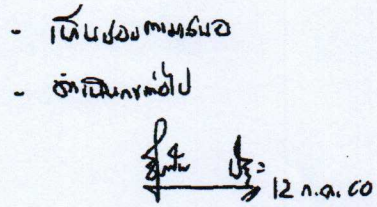 - เห็นชอบตามเสนอ
- ดำเนินการต่อไป
12 ก.ค. 60